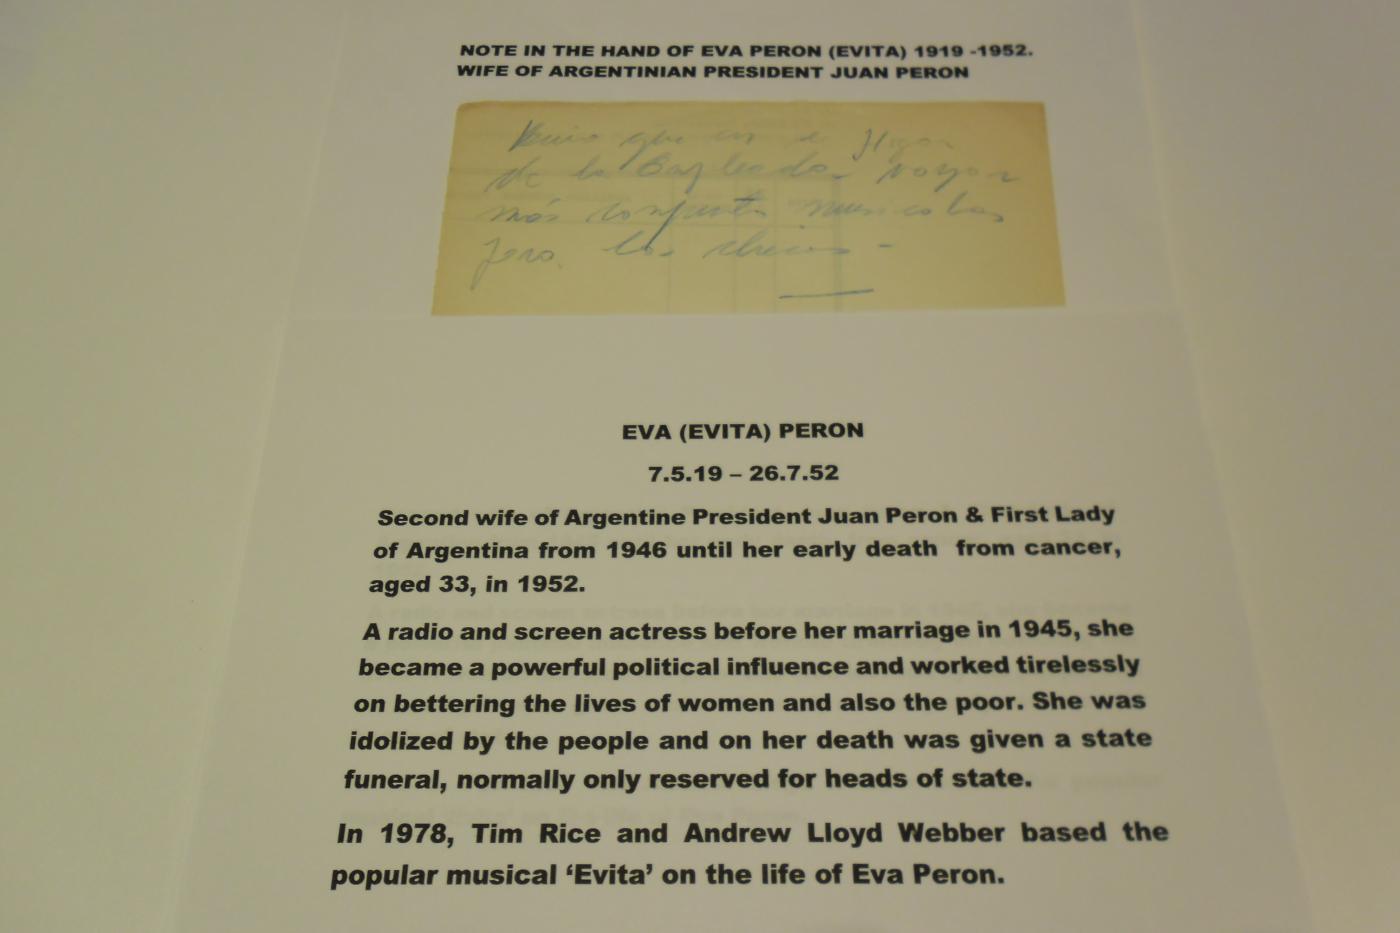 NOTE IN THE HAND OF EVA PERON (EVITA) 1919 -1952.
WIFE OF ARGENTINIAN PRESIDENT JUAN PERON
que en
de la Empleada vayan
más conjuntos musicales
para los
EVA (EVITA) PERON
7.5.19 – 26.7.52
Second wife of Argentine President Juan Peron & First Lady
of Argentina from 1946 until her early death from cancer,
aged 33, in 1952.
A radio and screen actress before her marriage in 1945, she
became a powerful political influence and worked tirelessly
on bettering the lives of women and also the poor. She was
idolized by the people and on her death was given a state
funeral, normally only reserved for heads of state.
In 1978, Tim Rice and Andrew Lloyd Webber based the
popular musical ‘Evita’ on the life of Eva Peron.